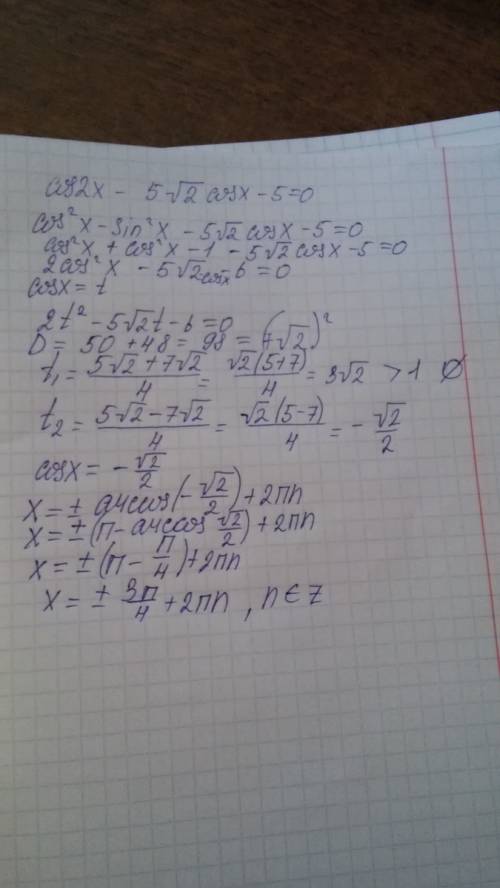 cos2x - 5√2 cosx - 5 = 0
cos²x - sin²x - 5√2 cosx - 5 = 0
cos²x + cos²x - 1 - 5√2 cosx - 5 = 0
2cos²x - 5√2 cosx 6 = 0
cosx = t
2t² - 5√2t - 6 = 0
D = 50 + 48 = 98 = (7√2)²
t₁ = (5√2 + 7√2)/4 = √2(5+7)/4 = 3√2 > 1 ∅
t₂ = (5√2 - 7√2)/4 = √2(5-7)/4 = -√2/2
cosx = -√2/2
x = ± arccos(-√2/2) + 2πn
x = ±(π - arccos √2/2) + 2πn
x = ±(π - π/4) + 2πn
x = ± 3π/4 + 2πn, n ∈ Z